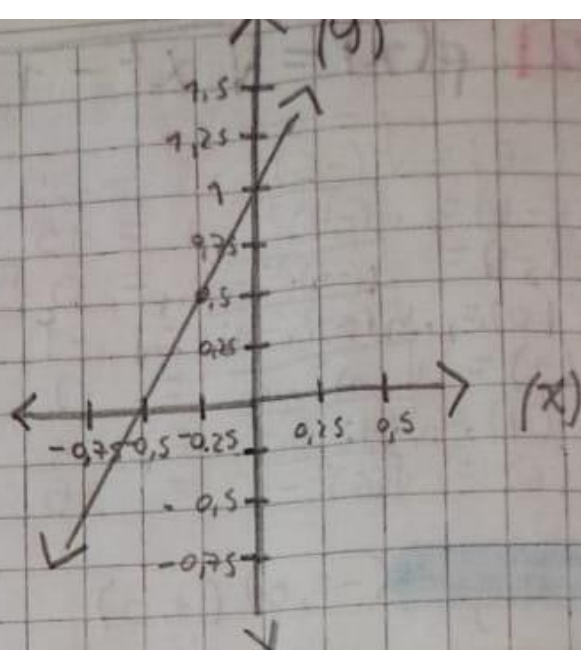 (y)
1,5
1,25
1
0,75
0,5
0,25
(x)
-0,75 -0,5 -0.25 0,25 0,5
- 0,5
-0,75